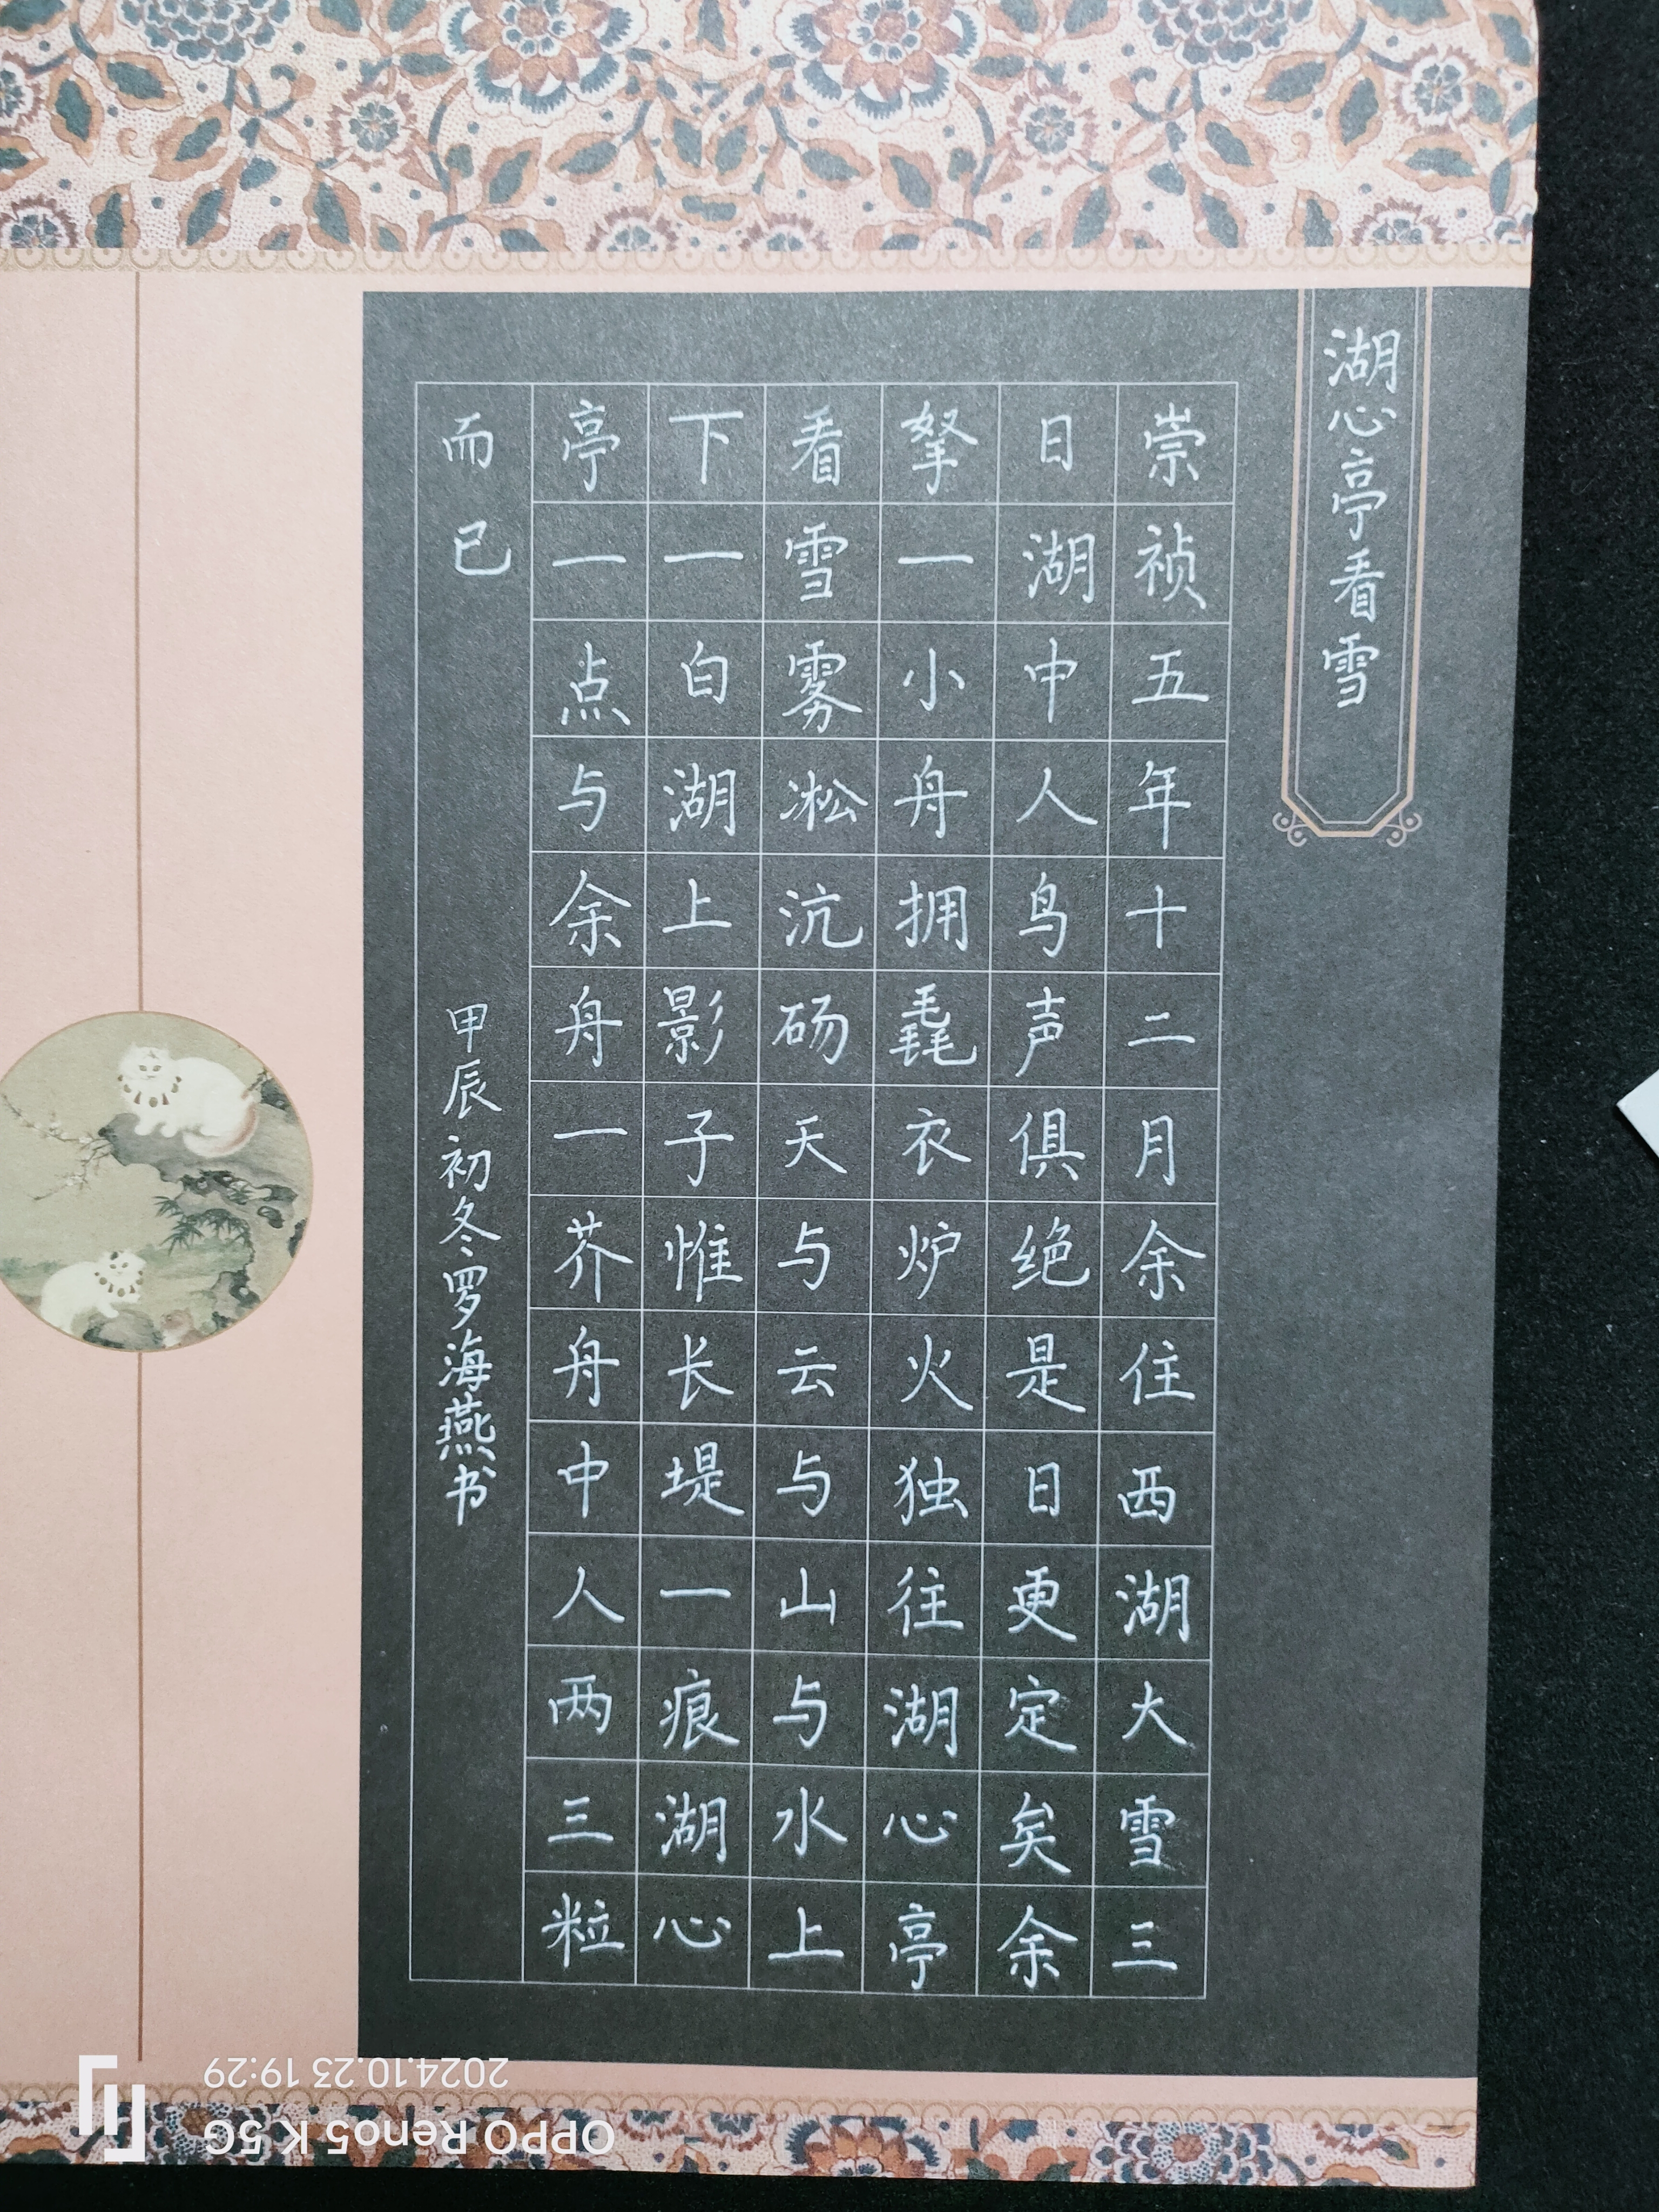 湖心亭看雪
崇祯五年十二月余住西湖大雪三
日湖中人鸟声俱绝是日更定矣余
拏一小舟拥毳衣炉火独往湖心亭
看雪雾凇沆砀天与云与山与水上
下一白湖上影子惟长堤一痕湖心
亭一点与余舟一芥舟中人两三粒
而已
甲辰初冬罗海燕书
OPPO Reno5 K 5G
2024.10.23 19:29